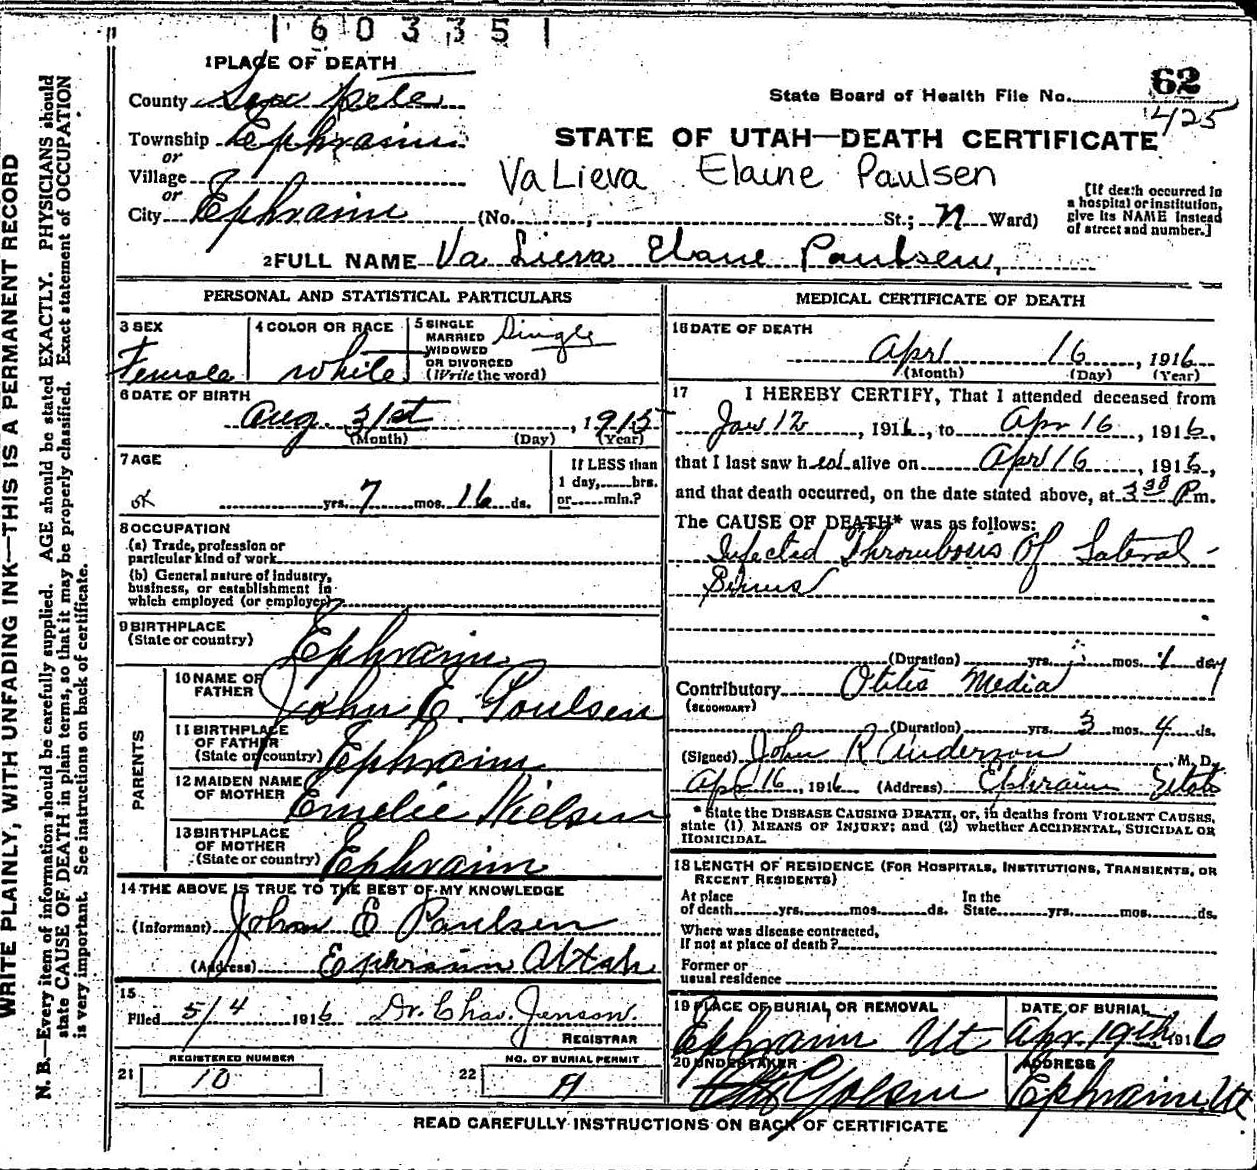 1 6 0 3 3 5 1
1 PLACE OF DEATH
County San Pete
62
State Board of Health File No.
425
Township Ephraim
or
STATE OF UTAH—DEATH CERTIFICATE
Village
or
Va Lieva Elaine Paulsen
City Ephraim (No. St.; n Ward)
[If death occurred in
a hospital or institution,
give its NAME instead
of street and number.]
2 FULL NAME Va Lieva Elane Paulsen,
PERSONAL AND STATISTICAL PARTICULARS
3 SEX
Female
4 COLOR OR RACE
White
5 SINGLE
MARRIED
WIDOWED
OR DIVORCED
(Write the word)
Single
6 DATE OF BIRTH
Aug. 31st, 1915
(Month) (Day) (Year)
7 AGE
yrs. 7 mos. 16 ds.
If LESS than
1 day, hrs.
or min.?
8 OCCUPATION
(a) Trade, profession or
particular kind of work
(b) General nature of industry,
business, or establishment in
which employed (or employer)
9 BIRTHPLACE
(State or country)
Ephraim
PARENTS
10 NAME OF
FATHER
John E. Poulsen
11 BIRTHPLACE
OF FATHER
(State or country)
Ephraim
12 MAIDEN NAME
OF MOTHER
Emelie Nielsen
13 BIRTHPLACE
OF MOTHER
(State or country)
Ephraim
14 THE ABOVE IS TRUE TO THE BEST OF MY KNOWLEDGE
(Informant) John E Paulsen
(Address) Ephraim Utah
15
Filed 5/4 1916 Dr. Chas. Jenson.
REGISTRAR
REGISTERED NUMBER
21 10
NO. OF BURIAL PERMIT
22
MEDICAL CERTIFICATE OF DEATH
16 DATE OF DEATH
Apr 16, 1916
(Month) (Day) (Year)
17 I HEREBY CERTIFY, That I attended deceased from
Jan 12, 1916, to Apr 16, 1916,
that I last saw h alive on Apr 16, 1916,
and that death occurred, on the date stated above, at 3 30 P m.
The CAUSE OF DEATH* was as follows:
Infected Thrombosis Of Lateral
Sinus
(Duration) yrs. mos. 1 day
Contributory Otitis Media
(SECONDARY)
(Duration) yrs. 3 mos. 4 ds.
(Signed) John R Anderson, M. D.
Apr 16, 1916 (Address) Ephraim Utah
* State the DISEASE CAUSING DEATH, or, in deaths from VIOLENT CAUSES,
state (1) MEANS OF INJURY; and (2) whether ACCIDENTAL, SUICIDAL OR
HOMICIDAL.
18 LENGTH OF RESIDENCE (FOR HOSPITALS, INSTITUTIONS, TRANSIENTS, OR
RECENT RESIDENTS)
At place
of death yrs. mos. ds.
In the
State yrs. mos. ds.
Where was disease contracted,
If not at place of death?
Former or
usual residence
19 PLACE OF BURIAL OR REMOVAL
Ephraim Ut
DATE OF BURIAL
Apr. 19th 1916
20 UNDERTAKER
ADDRESS
Ephraim, Ut
READ CAREFULLY INSTRUCTIONS ON BACK OF CERTIFICATE
WRITE PLAINLY, WITH UNFADING INK—THIS IS A PERMANENT RECORD
N. B.—Every item of information should be carefully supplied. AGE should be stated EXACTLY. PHYSICIANS should
state CAUSE OF DEATH in plain terms, so that it may be properly classified. Exact statement of OCCUPATION
is very important. See instructions on back of certificate.